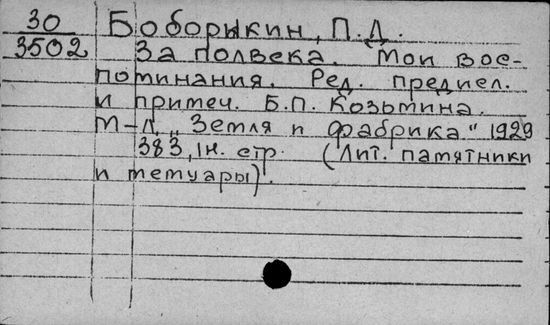 30 Боборыкин, П.Д.
3502 За полвека. Мои вос-
поминания. Ред. предисл.
и примеч. Б.П. Козьмина.
М-Л. „Земля и фабрика" 1929
383, 1н. стр. (Лит. памятники
и мемуары).